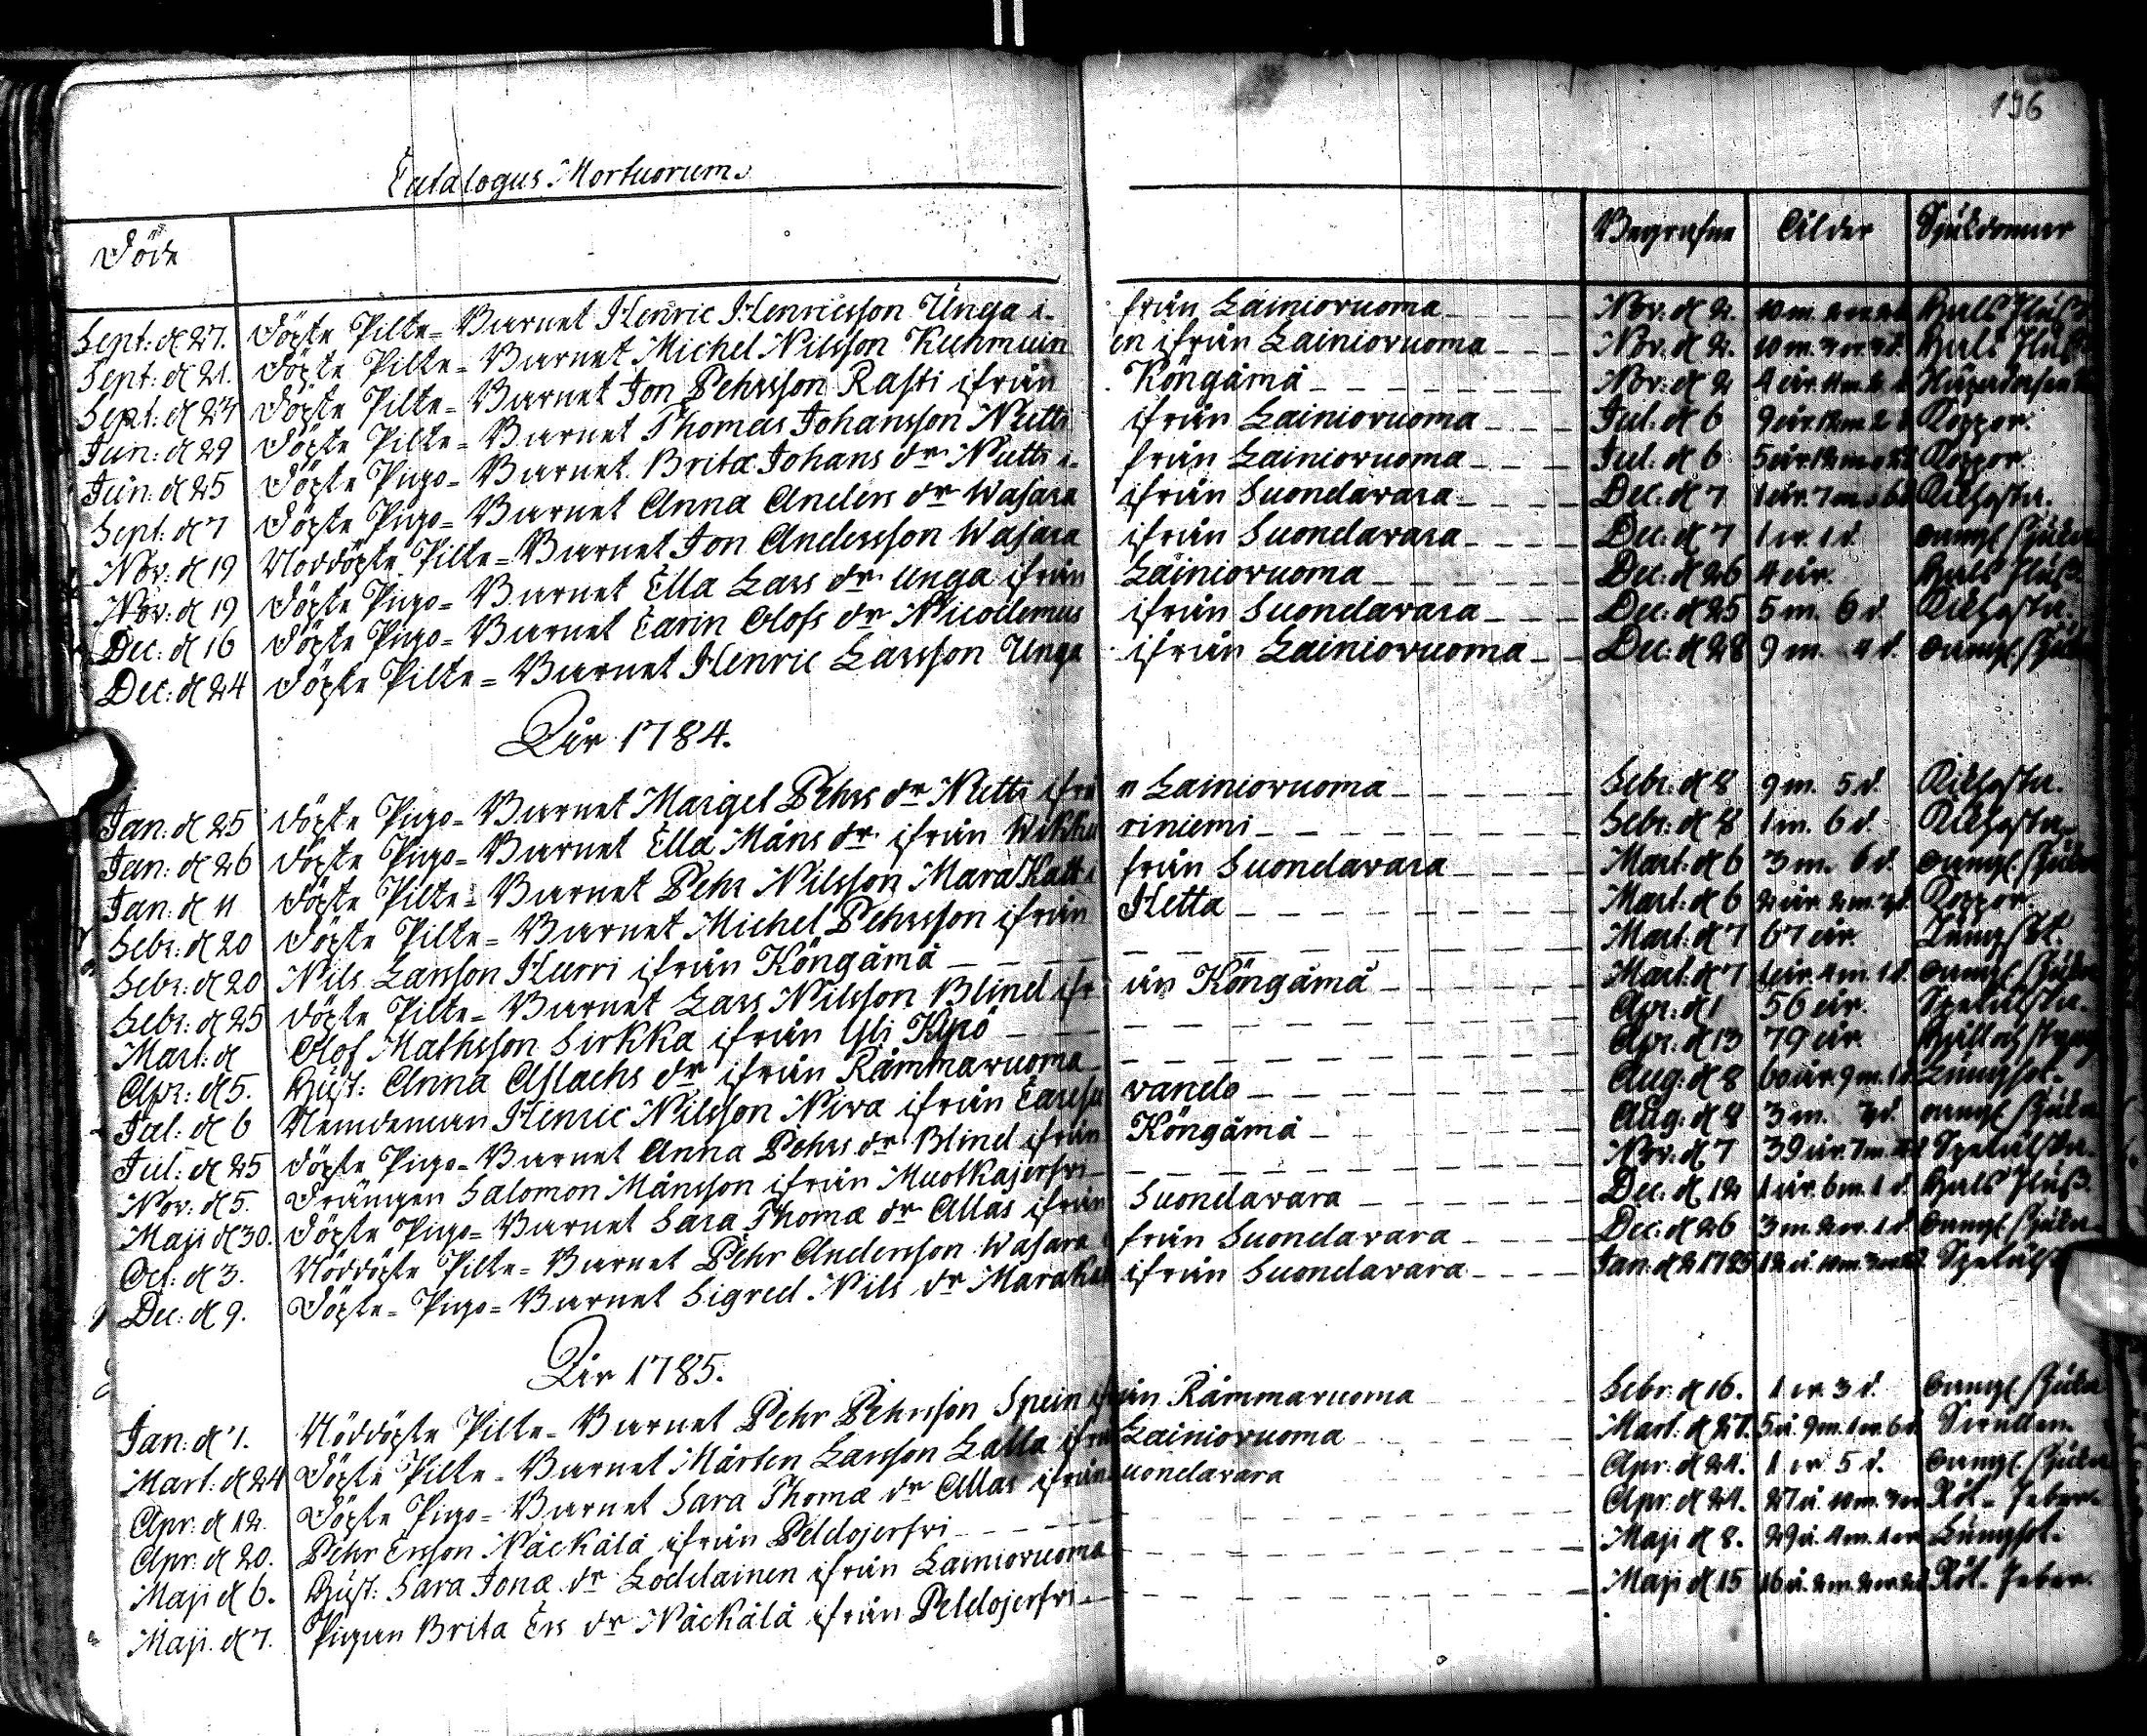 196
Catalogus Mortuorum.
Döde Begrafne Ålder Sjukdomar
Sept: d 27. Döpte Pilte-Barnet Henric Henricsson Unga i- från Lainiovuoma Nov: d 2. 10 m. Hals Fluss
Sept: d 21. Döpte Pilte-Barnet Michel Nilsson Kuhmuin en ifrån Lainiovuoma Nov: d 2. 10 m. Hals Fluss
Sept: d 27 Döpte Pilte-Barnet Jon Pehrsson Rasti ifrån Köngämä Nov: d 2 4 år
Jun: d 29 Döpte Pilte-Barnet Thomas Johansson Nutti ifrån Lainiovuoma Jul: d 6 9 år Koppor.
Jun: d 25 Döpte Pigo-Barnet Brita Johans dr Nutti i- från Lainiovuoma Jul: d 6 5 år Koppor.
Sept: d 7 Döpte Pigo-Barnet Anna Anders dr Wasara ifrån Suondavara Dec: d 7 1 år 7 m. Kikhosta.
Nov: d 19 Nöddöpte Pilte-Barnet Jon Andersson Wasara ifrån Suondavara Dec: d 7 1 v. 1 d. oangf. sjukd
Nov: d 19 Döpte Pigo-Barnet Ella Lars dr Unga ifrån Lainiovuoma Dec: d 26 4 år. Hals Fluss.
Dec: d 16 Döpte Pigo-Barnet Carin Olofs dr Nicodemus ifrån Suondavara Dec: d 25 5 m. 6 d. Kikhosta.
Dec: d 24 Döpte Pilte-Barnet Henric Larsson Unga ifrån Lainiovuoma Dec: d 28 9 m. oangf. sjukd
År 1784.
Jan: d 25 Döpte Pigo-Barnet Margel Pehrs dr Nutti ifrå n Lainiovuoma Febr: d 8 9 m. 5 d. Kikhosta.
Jan: d 26 Döpte Pigo-Barnet Ella Måns dr ifrån Wikku riniemi Febr: d 8 1 m. 6 d. Kikhosta.
Jan: d 11 Döpte Pilte-Barnet Pehr Nilsson MaraKatt i från Suondavara Mart: d 6 3 m. 6 d. oangf. sjukd
Febr: d 20 Döpte Pilte-Barnet Michel Pehrsson ifrån Hetta Mart: d 6 2 år 2 m. Koppor.
Febr: d 20 Nils Larsson Hurri ifrån Köngämä Mart: d 7 67 år.
Febr: d 25 Döpte Pilte-Barnet Lars Nilsson Blind ifr ån Köngämä Mart: d 7 1 år. 4 m. 1 d. oangf. sjukd
Mart: d Olof Mathsson Sirkka ifrån Yli Kyrö Apr: d 1 56 år.
Apr: d 5. Hust: Anna Aslachs dr ifrån Råmmavuoma Apr: d 13 79 år. Håll och styng
Jul: d 6 Nemdeman Henric Nilsson Niva ifrån Caresu vando Aug: d 8 60 år. 9 m. 1 d. Lungsot.
Jul: d 25 Döpte Pigo-Barnet Anna Pehrs dr Blind ifrån Köngämä Aug: d 8 3 m. oangf. sjukd
Nov: d 5. Drängen Salomon Månsson ifrån Muotkajerfvi Nov: d 7 39 år. 7 m.
Maji d 30. Döpte Pigo-Barnet Sara Thomæ dr Allas ifrån Suondavara Dec: d 12 1 år. 6 m. 1 d. Hals Fluss.
Oct: d 3. Nöddöpte Pilte-Barnet Pehr Andersson Wasara i från Suondavara Dec: d 26 3 m. 2 v. 1 d. oangf. sjukd
Dec: d 9. Döpte-Pigo-Barnet Sigred Nils dr Marakatt ifrån Suondavara Jan: d 2 1785
År 1785.
Jan: d 1. Nöddöpte Pilte-Barnet Pehr Pehrsson Spein ifrån Råmmavuoma Febr: d 16. 1 v. 3 d. oangf. sjukd
Mart: d 24 Döpte Pilte-Barnet Mårten Larsson Lalla ifrån Lainiovuoma Mart: d 27. 5 å. 9 m. 1 v. 6 d.
Apr: d 12. Döpte Pigo-Barnet Sara Thomæ dr Allas ifrån Suondavara Apr: d 24. 1 v. 5 d. oangf. sjukd
Apr: d 20. Pehr Ersson Näckälä ifrån Peldojerfvi Apr: d 24. 27 å. 10 m. 3 v. Röt-feber.
Maji d 6. Hust: Sara Jonæ dr Loddainen ifrån Lainiovuoma Maji d 8. 29 å. 4 m. 1 v. Lungsot.
Maji d 7. Pigan Brita Ers dr Näckälä ifrån Peldojerfvi Maji d 15 16 å. 2 m. Röt-feber.